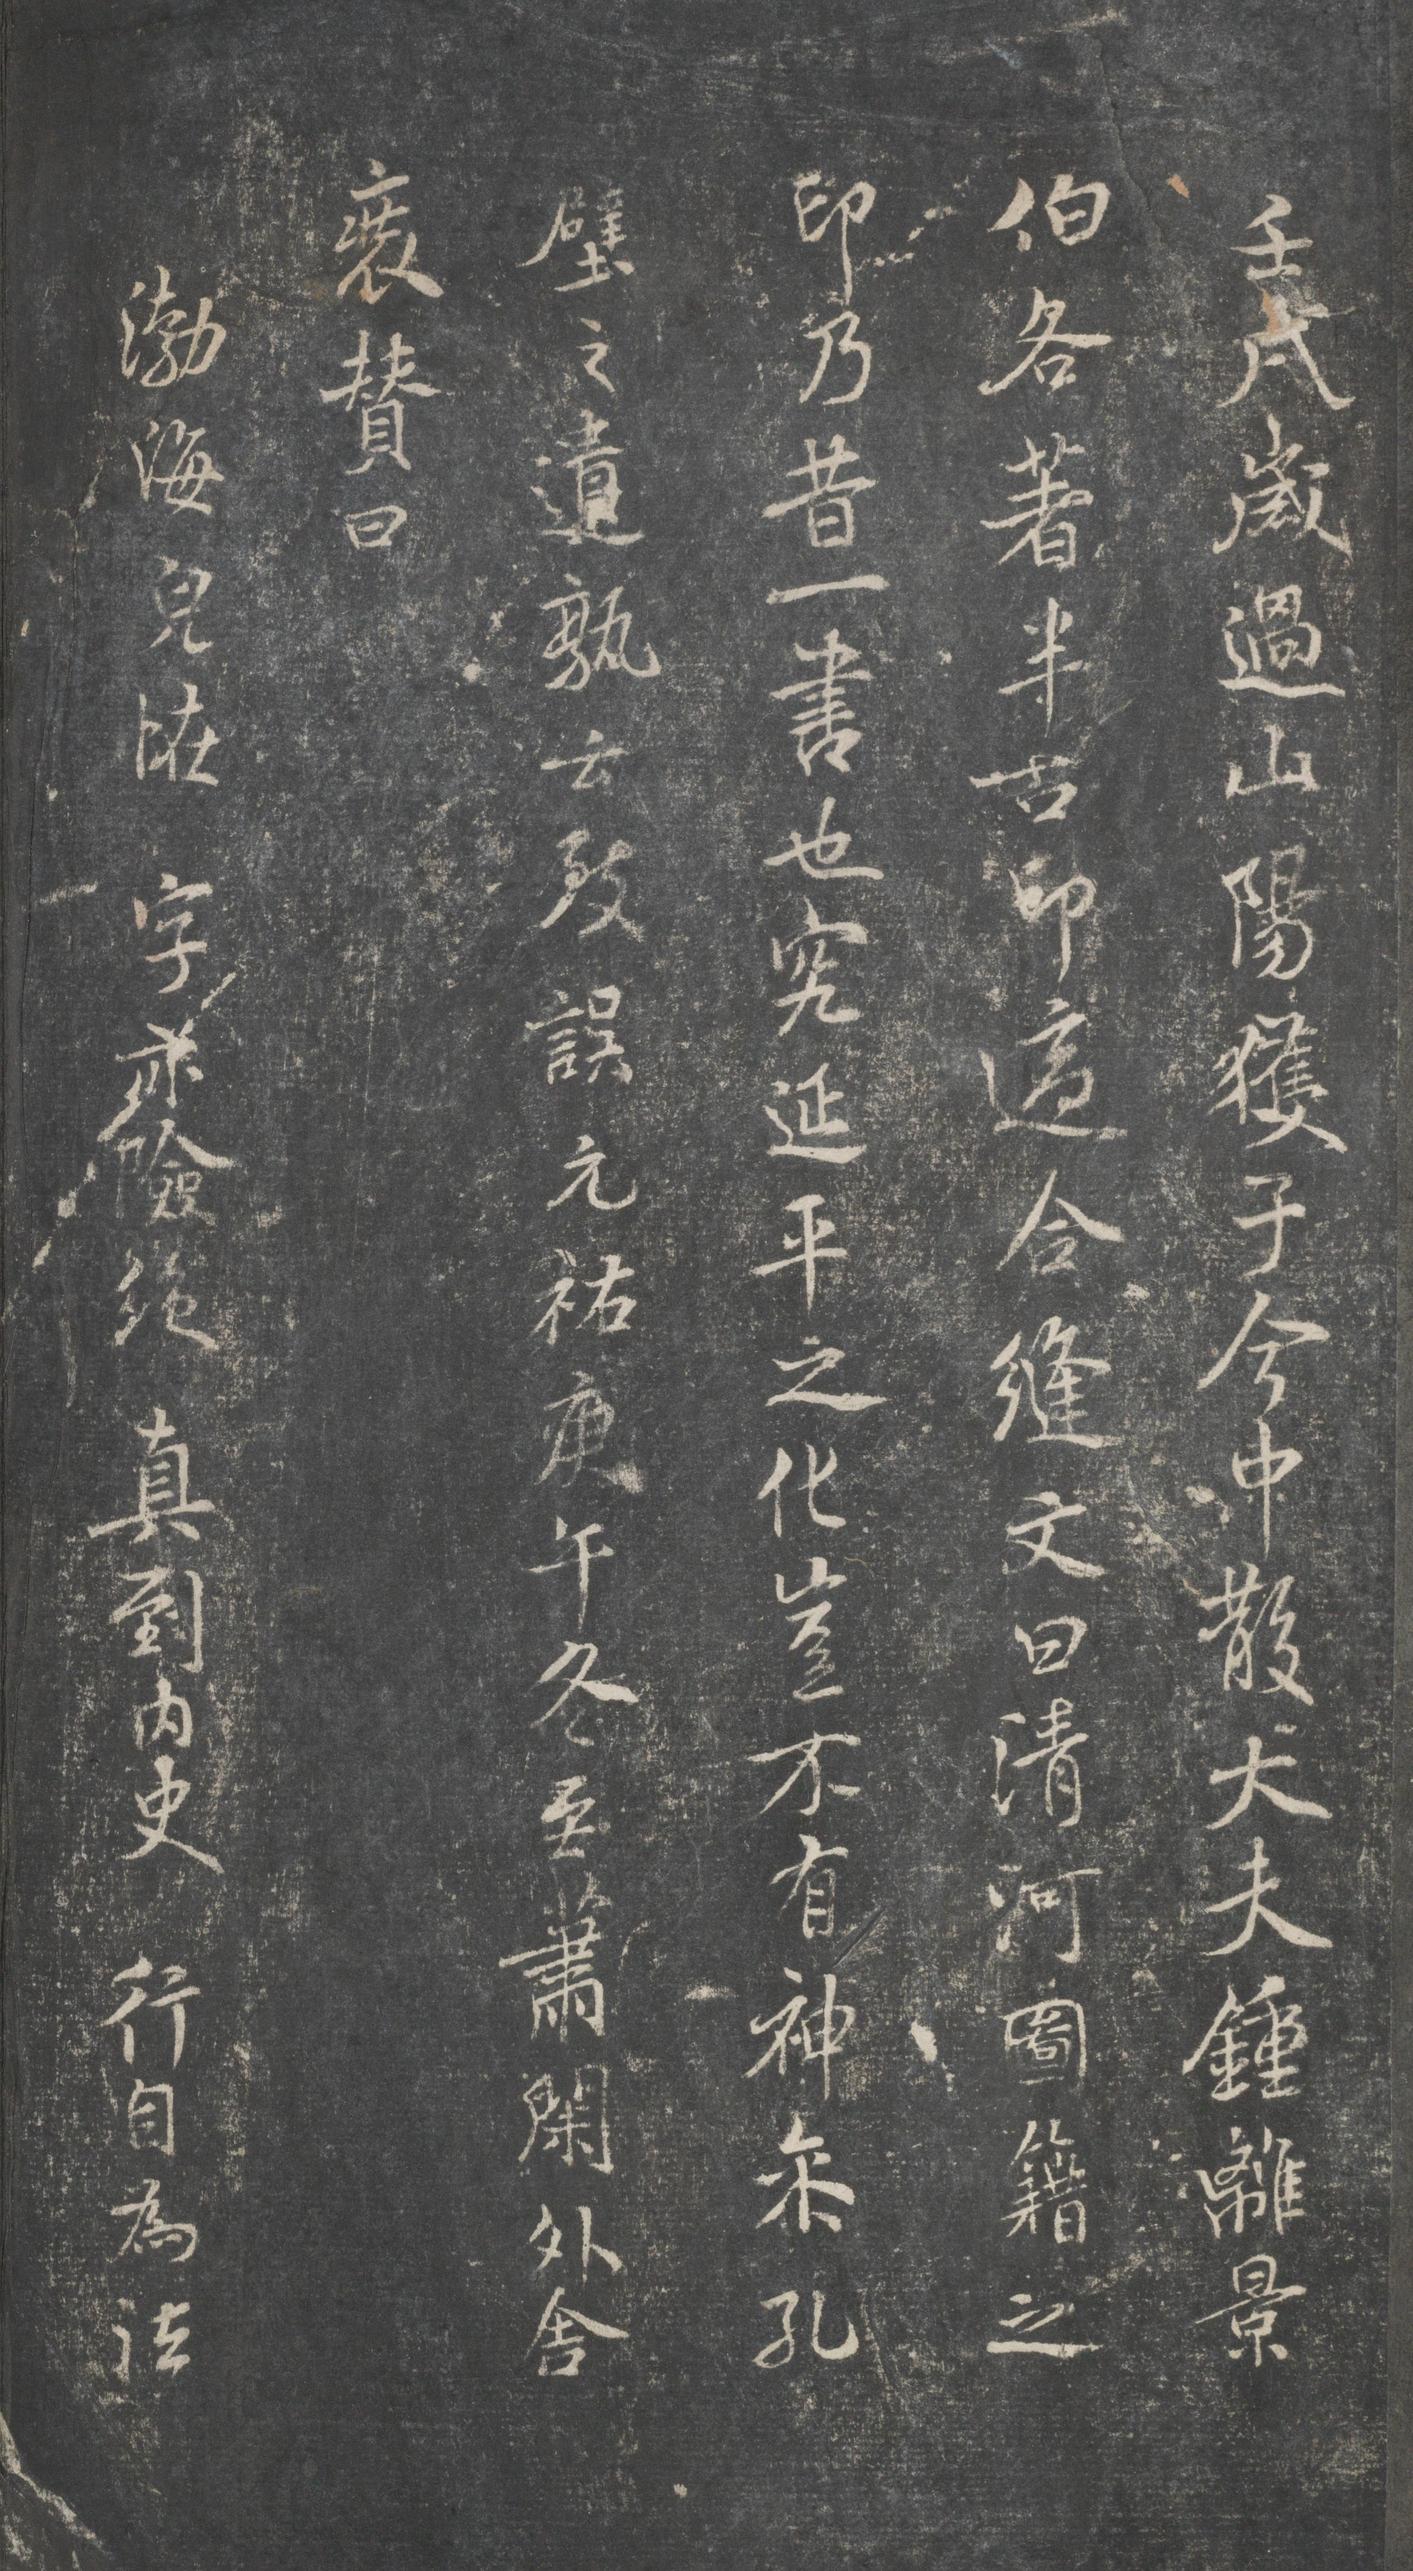 壬戌歲過山陽獲于今中散大夫鍾離景
伯各著半古印適合縫文曰清河圖籍之
印乃昔一書也究延平之化豈不有神衆孔
壁之遺孰云致誤元祐庚午冬至蕭閑外舍
裝贊曰
渤海兒 字亦險絶 真到内史 行自為法